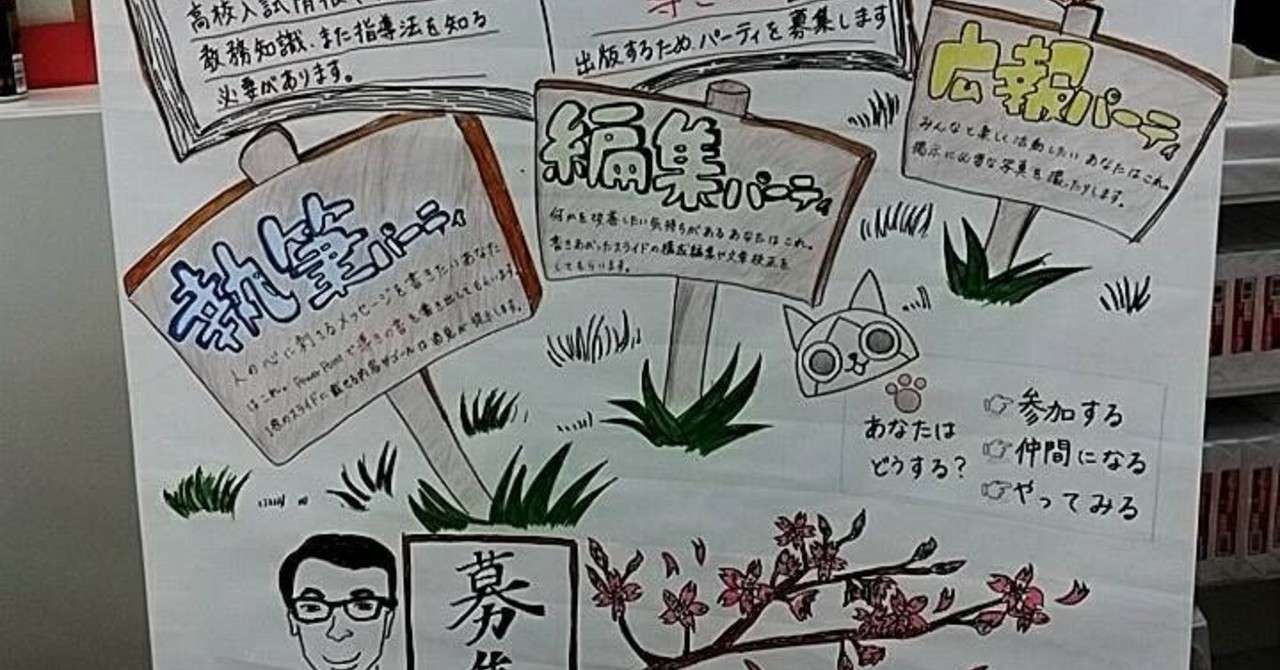 高校入試情報
教務知識、また指導法を知る
必要があります。
出版するため、パーティを募集します
広報パーティ
みんなと楽しく活動したいあなたはこれ。
掲示に必要な写真を撮ったりします。
編集パーティ
何かを改善したい気持ちがあるあなたはこれ。
書きあがったスライドの構成編集や文章校正を
してもらいます。
執筆パーティ
人の心に刺さるメッセージを書きたいあなた
はこれ。PowerPointで導きの書を書き出してもらいます。
スライドに載せる内容やゴールは
あなたは
どうする?
参加する
仲間になる
やってみる
募